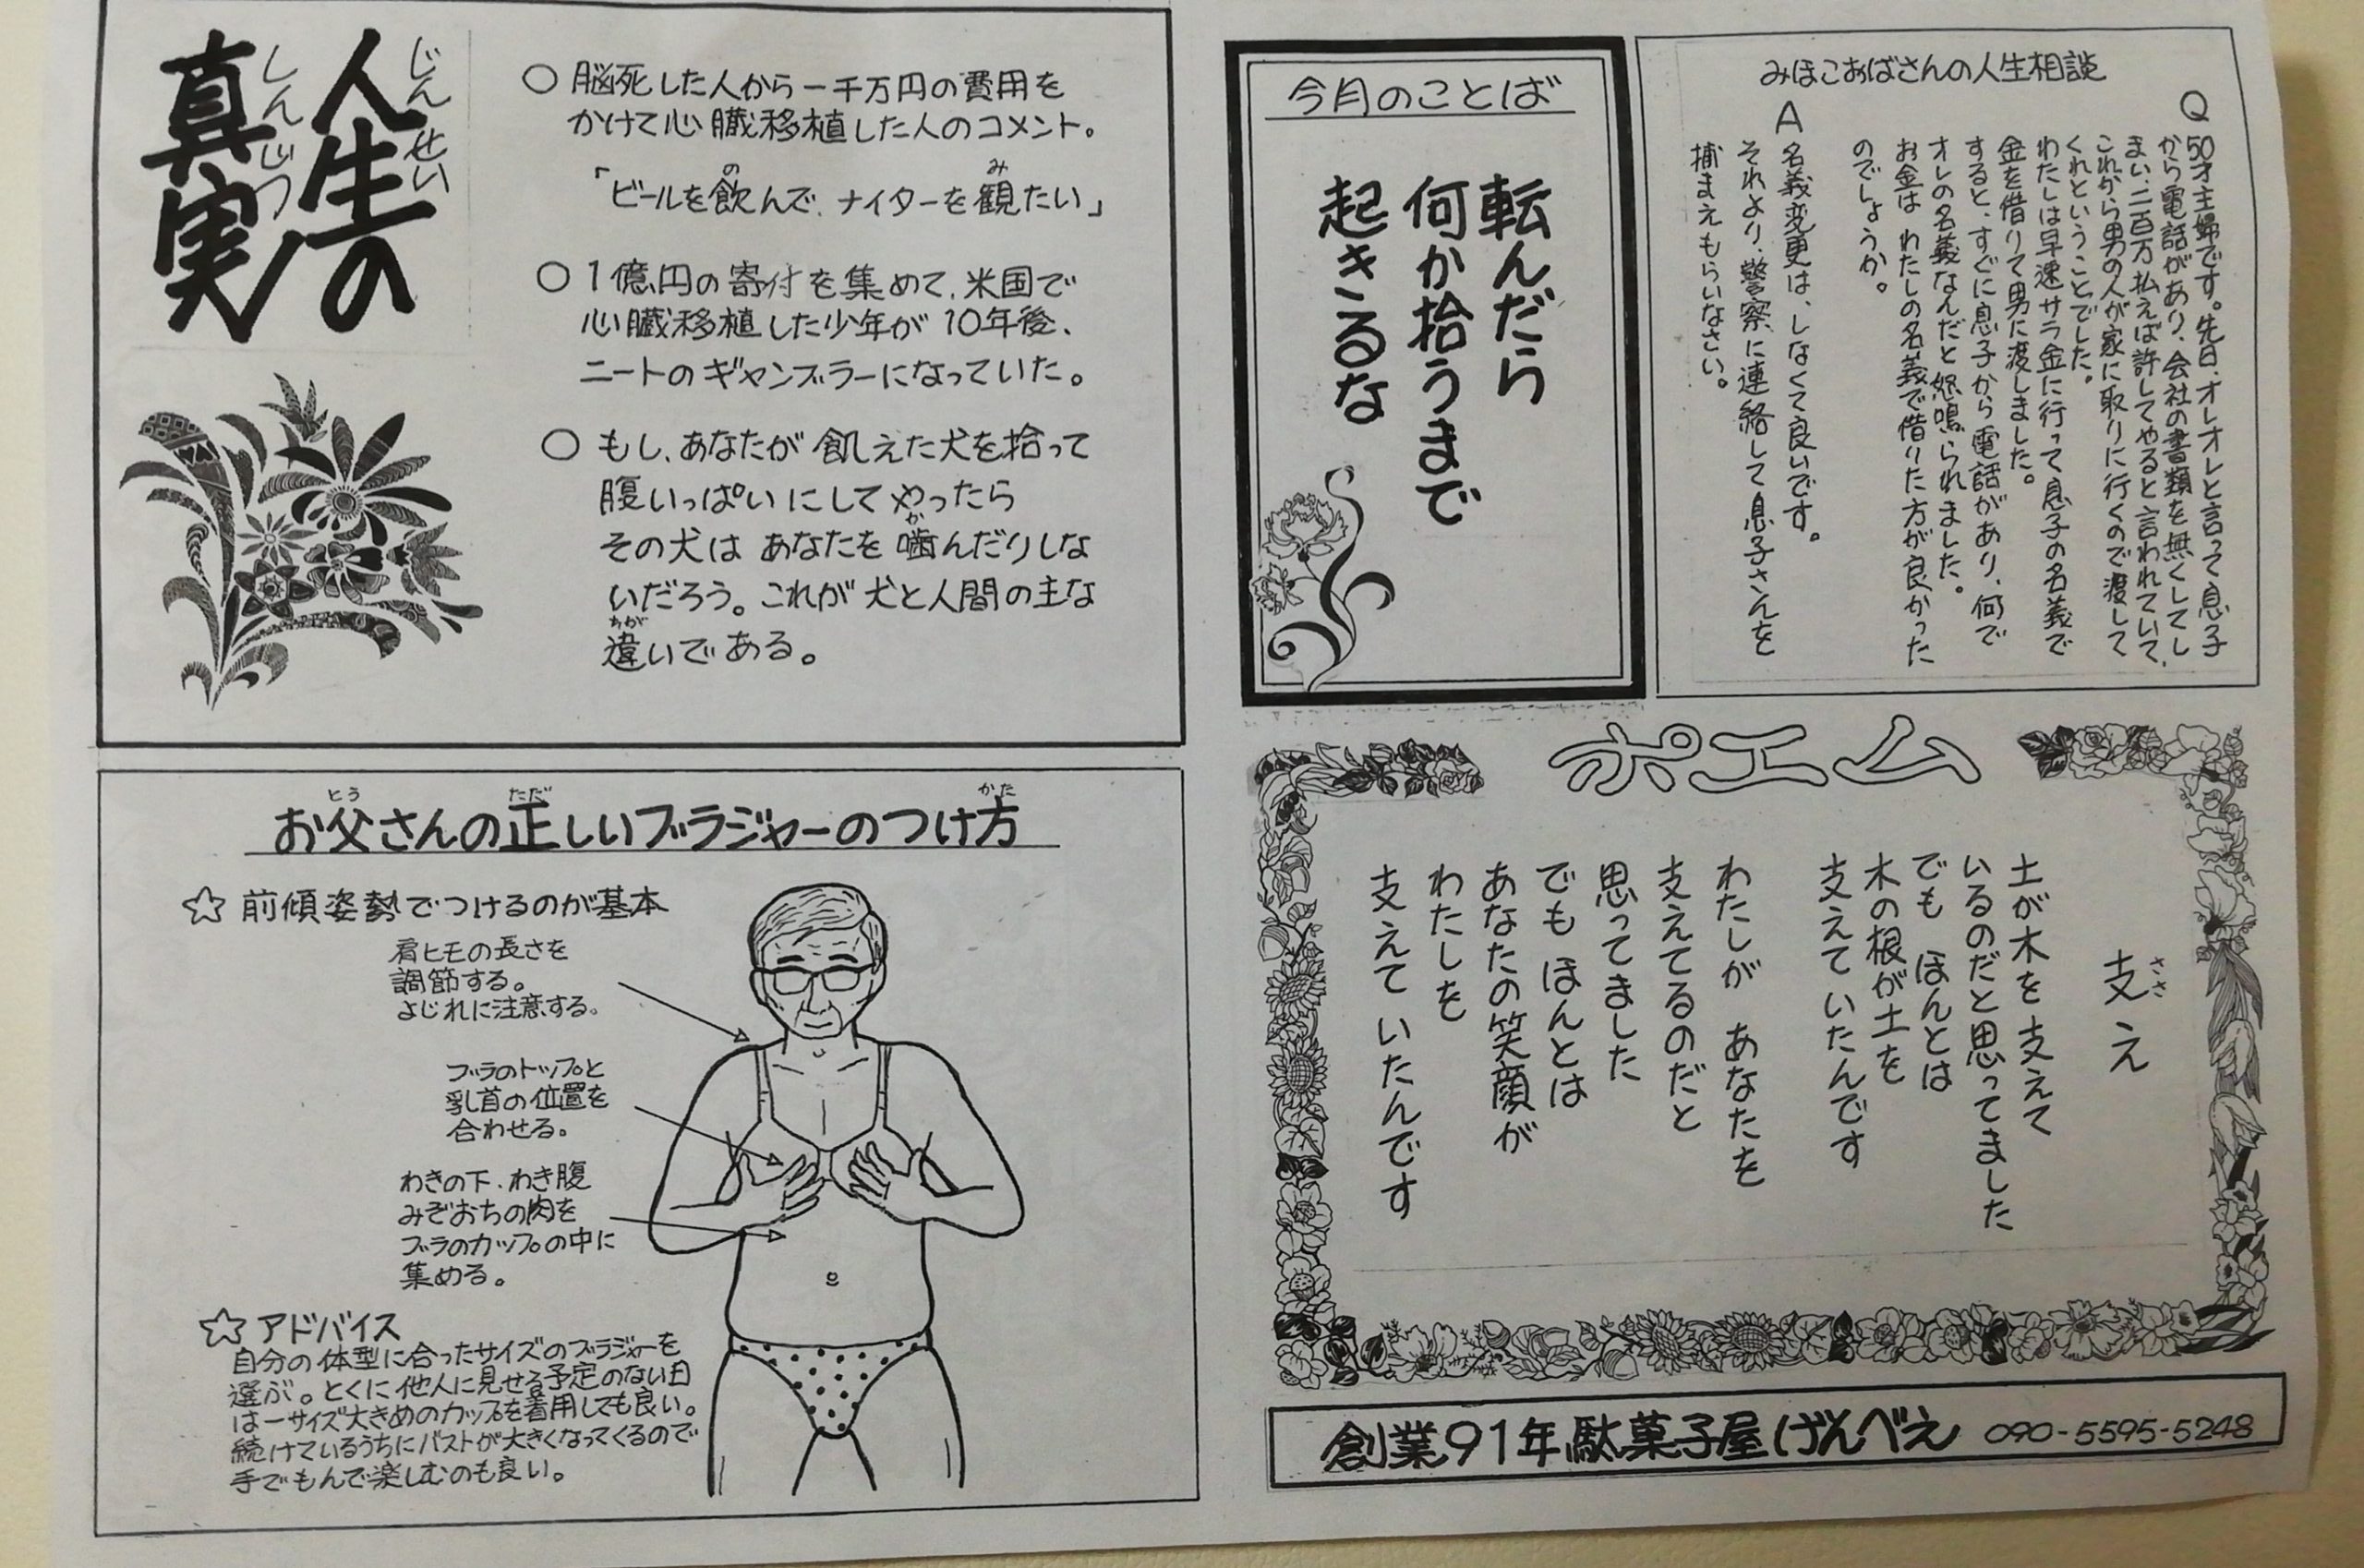 人生の
真実
じんせい
しんじつ
○ 脳死した人から一千万円の費用を
かけて心臓移植した人のコメント。
「ビールを飲んで、ナイターを観たい」
の
み
○ 1億円の寄付を集めて、米国で
心臓移植した少年が10年後、
ニートのギャンブラーになっていた。
○ もし、あなたが飢えた犬を拾って
腹いっぱいにしてやったら
その犬はあなたを噛んだりしな
か
いだろう。これが犬と人間の主な
違いである。
ちが
お父さんの正しいブラジャーのつけ方
とう
ただ
かた
☆ 前傾姿勢でつけるのが基本
肩ヒモの長さを
調節する。
よじれに注意する。
ブラのトップと
乳首の位置を
合わせる。
わきの下、わき腹
みぞおちの肉を
ブラのカップの中に
集める。
☆ アドバイス
自分の体型に合ったサイズのブラジャーを
選ぶ。とくに他人に見せる予定のない日
は一サイズ大きめのカップを着用しても良い。
続けているうちにバストが大きくなってくるので
手でもんで楽しむのも良い。
みほこおばさんの人生相談
Q
50才主婦です。先日、オレオレと言って息子
から電話があり、会社の書類を無くしてし
まい、二百万払えば許してやると言われていて、
これから男の人が家に取りに行くので渡して
くれということでした。
わたしは早速サラ金に行って息子の名義で
金を借りて男に渡しました。
すると、すぐに息子から電話があり、何で
オレの名義なんだと怒鳴られました。
お金は わたしの名義で借りた方が良かった
のでしょうか。
A
名義変更は、しなくて良いです。
それより、警察に連絡して息子さんを
捕まえもらいなさい。
今月のことば
転んだら
何か拾うまで
起きるな
ポエム
支え
ささ
土が木を支えて
いるのだと思ってました
でも ほんとは
木の根が土を
支えていたんです
わたしが あなたを
支えてるのだと
思ってました
でもほんとは
あなたの笑顔が
わたしを
支えていたんです
創業91年駄菓子屋げんべえ 090-5595-5248